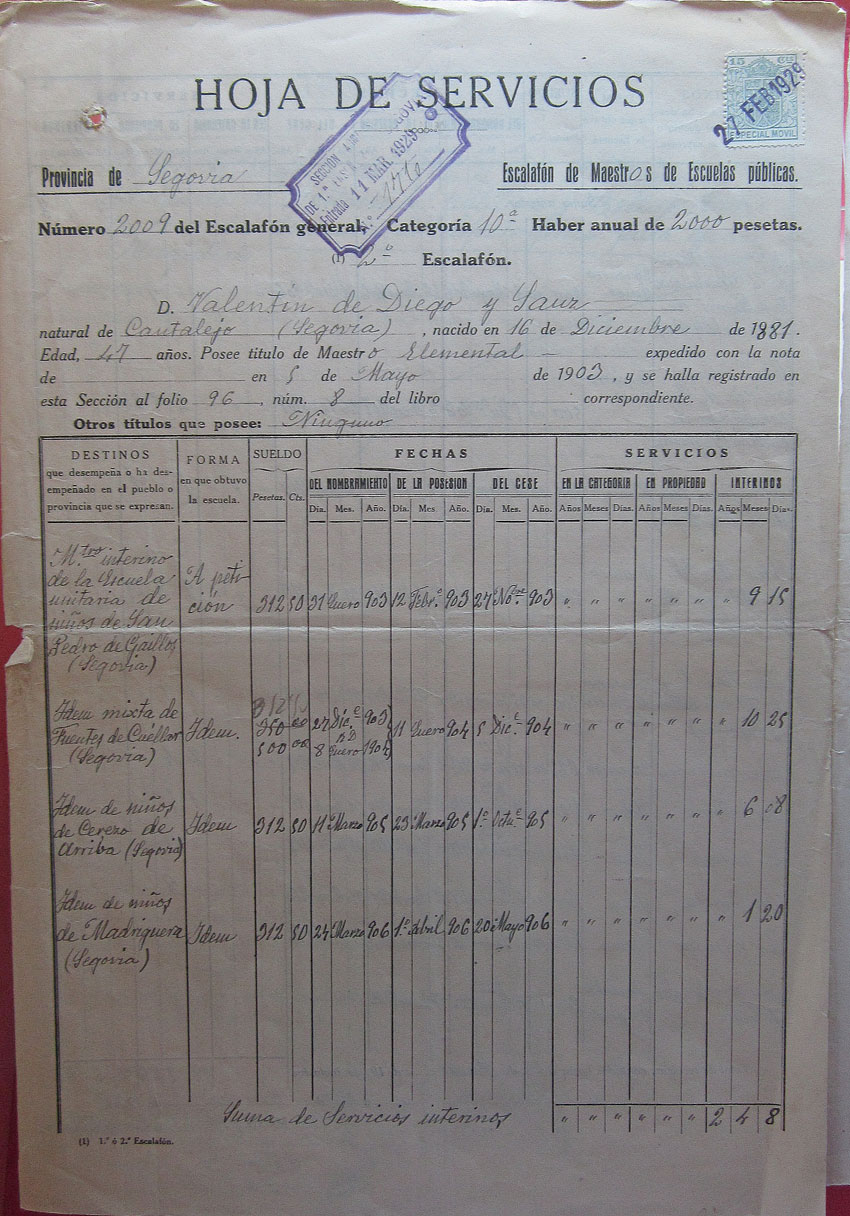 HOJA DE SERVICIOS
15 CTS
ESPECIAL MOVIL
27 FEB 1929
SECCIÓN
DE 1.ª
Entrada 11 MAR. 1929
N.º 176
Provincia de Segovia
Escalafón de Maestros de Escuelas públicas.
Número 2009 del Escalafón general. Categoría 10ª Haber anual de 2000 pesetas.
(1) 2º Escalafón.
D. Valentín de Diego y Sanz
natural de Cantalejo (Segovia), nacido en 16 de Diciembre de 1881.
Edad, 47 años. Posee titulo de Maestro Elemental expedido con la nota
de en 5 de Mayo de 1903, y se halla registrado en
esta Sección al folio 96, núm. 8 del libro correspondiente.
Otros títulos que posee: Ninguno
DESTINOS
que desempeña o ha des-
empeñado en el pueblo o
provincia que se expresan.
FORMA
en que obtuvo
la escuela.
SUELDO
Pesetas. Cts.
FECHAS
DEL NOMBRAMIENTO DE LA POSESION DEL CESE
Día. Mes. Año. Día. Mes. Año. Día. Mes. Año.
SERVICIOS
EN LA CATEGORIA EN PROPIEDAD INTERINOS
Años Meses Días. Años Meses Días. Años Meses Días.
M.tro interino
de la Escuela
unitaria de
niños de San
Pedro de Gaillos
(Segovia)
A peti-
ción
312 50 31 Enero 903 12 Febr.º 903 27 Nobre. 903 " " " " " " " 9 15
Idem mixta de
Fuentes de Cuéllar
(Segovia)
Idem.
312
350 00
500 00
27 Dic.e 903
8 Enero 1904
11 Enero 904 5 Dic.e 904 " " " " " " " 10 25
Idem de niños
de Cerezo de
Arriba (Segovia)
Idem 312 50 11 Marzo 905 23 Marzo 905 1º Octu.e 905 " " " " " " " 6 08
Idem de niños
de Madriguera
(Segovia)
Idem 312 50 24 Marzo 906 1º Abril 906 20 Mayo 906 " " " " " " " 1 20
Suma de Servicios interinos " " " " " " 2 4 8
(1) 1.º ó 2.º Escalafón.